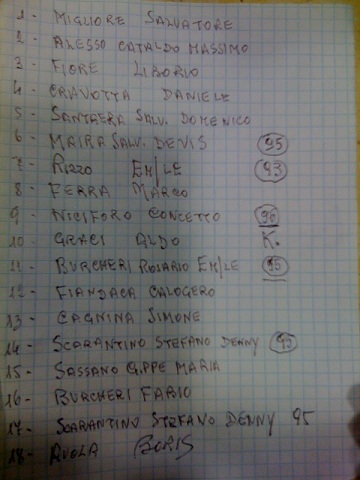 1 - MIGLIORE SALVATORE
2 - ALESSO CATALDO MASSIMO
3 - FIORE LIBORIO
4 - CRAVOTTA DANIELE
5 - SANTRERA SALV. DOMENICO
6 - MAIRA SALV. DEVIS 95
7 - RIZZO EM/LE 93
8 - FERRA MARCO
9 - NICIFORO CONCETTO 96
10 - GRACI ALDO K.
11 - BURCHERI ROSARIO EM/LE 95
12 - FIANDACA CALOGERO
13 - CAGNINA SIMONE
14 - SCARANTINO STEFANO DENNY
15 - SASSANO G.PPE MARIA
16 - BURCHERI FABIO
17 - SCARANTINO STEFANO DENNY 95
18 - BORIS